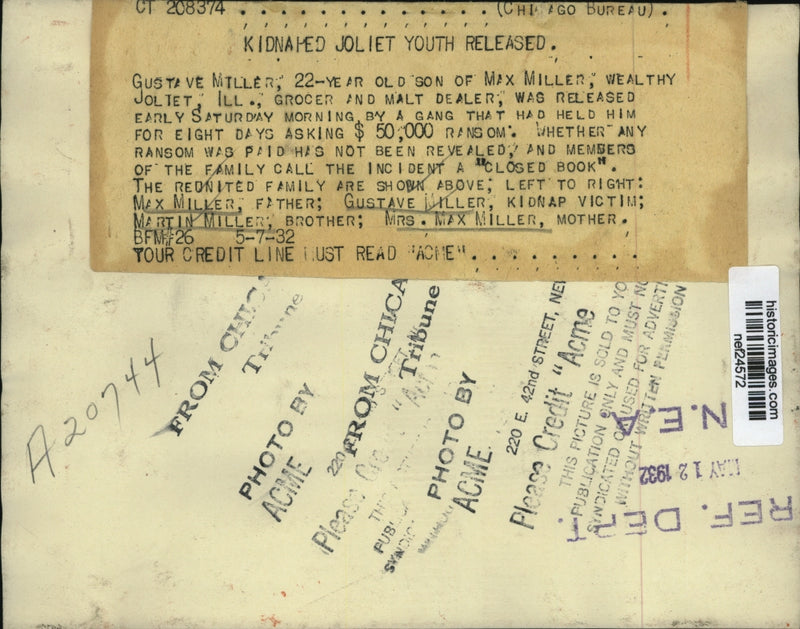 CT 208374 . . . . . . . . . . . . . . (CHICAGO BUREAU).
KIDNAPED JOLIET YOUTH RELEASED.
GUSTAVE MILLER, 22-YEAR OLD SON OF MAX MILLER, WEALTHY
JOLIET, ILL., GROCER AND MALT DEALER, WAS RELEASED
EARLY SATURDAY MORNING BY A GANG THAT HAD HELD HIM
FOR EIGHT DAYS ASKING $ 50,000 RANSOM. WHETHER ANY
RANSOM WAS PAID HAS NOT BEEN REVEALED, AND MEMBERS
OF THE FAMILY CALL THE INCIDENT A "CLOSED BOOK".
THE REUNITED FAMILY ARE SHOWN ABOVE, LEFT TO RIGHT:
MAX MILLER, FATHER; GUSTAVE MILLER, KIDNAP VICTIM;
MARTIN MILLER, BROTHER; MRS. MAX MILLER, MOTHER.
BFM#26 5-7-32
YOUR CREDIT LINE MUST READ "ACME". . . . . . . . . .
A20744
FROM CHICA
Tribune
PHOTO BY
ACME
FROM CHICA
Tribune
220
Please
PUBL
SYNDIC
PHOTO BY
ACME
220 E. 42nd STREET, NE
Please Credit "Acme
THIS PICTURE IS SOLD TO YO
PUBLICATION ONLY AND MUST NO
SYNDICATED OR USED FOR ADVERTI
WITHOUT WRITTEN PERMISSION
N.E.A.
MAY 12 1932
REF. DEPT.
historicimages.com
nef24572